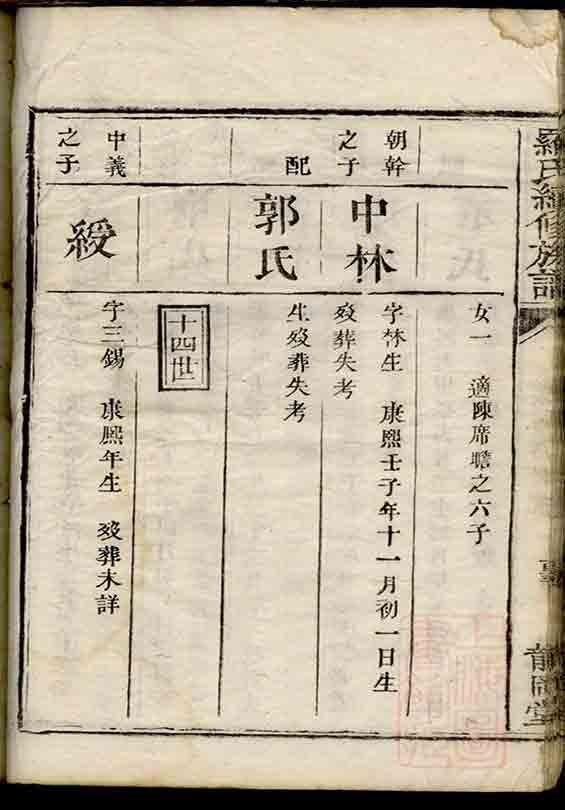 羅氏續修族譜
女一 適陳席瞻之六子
朝幹之子
中林
字林生 康熙壬子年十一月初一日生
歿葬失考
配
郭氏
生歿葬失考
十四世
中義之子
綬
字三錫 康熙年生 歿葬未詳